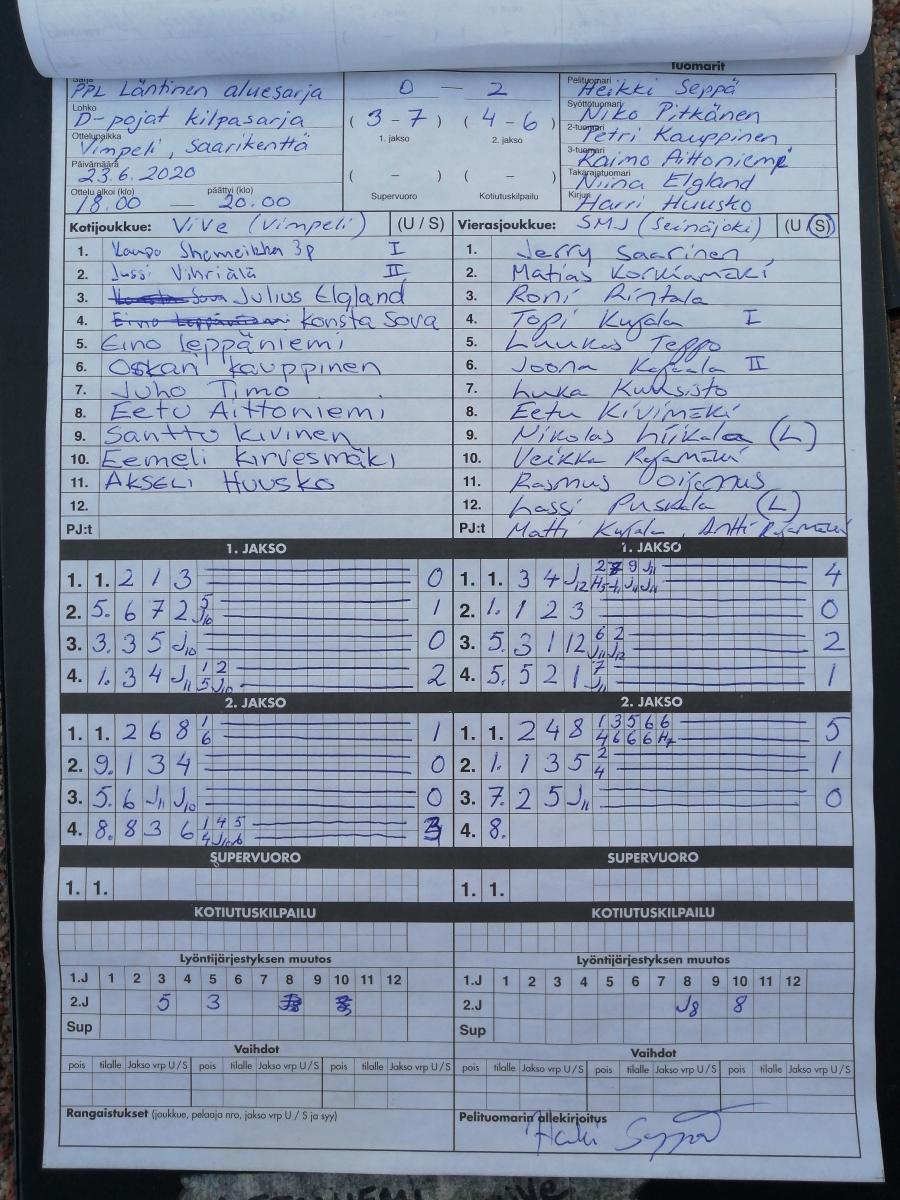 Sarja
PPL Läntinen aluesarja
Lohko
D-pojat kilpasarja
Ottelupaikka
Vimpeli, Saarikenttä
Päivämäärä
23.6.2020
Ottelu alkoi (klo) päättyi (klo)
18.00 — 20.00
0 — 2
( 3 - 7 ) ( 4 - 6 )
1. jakso 2. jakso
( - ) ( - )
Supervuoro Kotiutuskilpailu
Tuomarit
Pelituomari
Heikki Seppä
Syöttötuomari
Niko Pitkänen
2-tuomari
Petri Kauppinen
3-tuomari
Raimo Aittoniemi
Takarajatuomari
Niina Elgland
Kirjuri
Harri Huusko
Kotijoukkue: ViVe (Vimpeli) (U / S)
1. Shemeikka 3p I
2. Jussi Vihriälä II
3. Julius Elgland
4. Konsta Sova
5. Eino Leppäniemi
6. Oskari Kauppinen
7. Juho Timo
8. Eetu Aittoniemi
9. Santtu Kivinen
10. Eemeli Kirvesmäki
11. Akseli Huusko
12.
PJ:t
Vierasjoukkue: SMJ (Seinäjoki) (U / S)
1. Jerry Saarinen
2. Matias Korkiamäki
3. Roni Rintala
4. Topi Kujala I
5. Luukas Teppo
6. Joona Kujala II
7. Luka Kuusisto
8. Eetu Kivimäki
9. Nikolas (L)
10. Veikka Rajamäki
11. Rasmus
12. Lassi Puskala (L)
PJ:t Matti Kujala, Antti Rajamäki
1. JAKSO
1. 1. 2 1 3 0
2. 5. 6 7 2 5 J10 1
3. 3. 3 5 J10 0
4. 1. 3 4 J11 1 2 5 J10 2
1. JAKSO
1. 1. 3 4 J12 4
2. 1. 1 2 3 0
3. 5. 3 1 12 6 2 J11 J12 2
4. 5. 5 2 1 7 J11 1
2. JAKSO
1. 1. 2 6 8 1 6 1
2. 9. 1 3 4 0
3. 5. 6 J11 J10 0
4. 8. 8 3 6 1 4 5 4 J10 6 3
2. JAKSO
1. 1. 2 4 8 1 3 5 6 6 4 6 6 6 H7 5
2. 1. 1 3 5 2 4 1
3. 7. 2 5 J11 0
4. 8.
SUPERVUORO
1. 1.
SUPERVUORO
1. 1.
KOTIUTUSKILPAILU
KOTIUTUSKILPAILU
Lyöntijärjestyksen muutos
1.J 1 2 3 4 5 6 7 8 9 10 11 12
2.J 5 3
Sup
Lyöntijärjestyksen muutos
1.J 1 2 3 4 5 6 7 8 9 10 11 12
2.J J8 8
Sup
Vaihdot
pois tilalle Jakso vrp U / S pois tilalle Jakso vrp U / S pois tilalle Jakso vrp U / S
Vaihdot
pois tilalle Jakso vrp U / S pois tilalle Jakso vrp U / S pois tilalle Jakso vrp U / S
Rangaistukset (joukkue, pelaaja nro, jakso vrp U / S ja syy)
Pelituomarin allekirjoitus